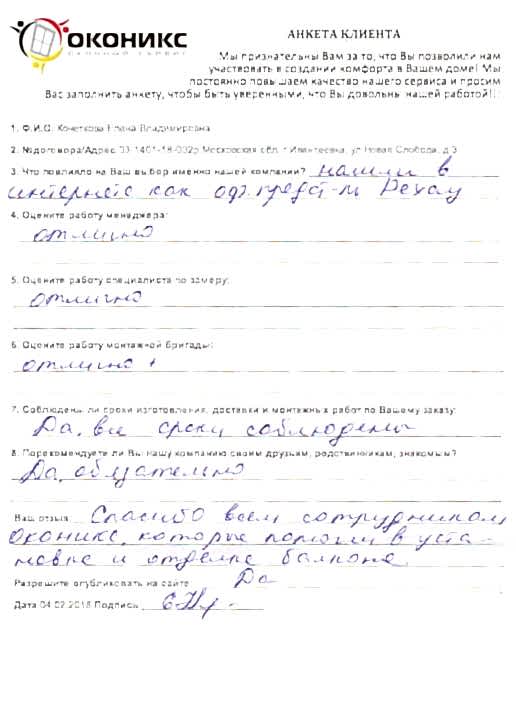 ОКОНИКС
ОКОННЫЙ СЕРВИС
АНКЕТА КЛИЕНТА
Мы признательны Вам за то, что Вы позволили нам
участвовать в создании комфорта в Вашем доме! Мы
постоянно повышаем качество нашего сервиса и просим
Вас заполнить анкету, чтобы быть уверенными, что Вы довольны нашей работой!!!
1. Ф.И.О. Кочеткова Елена Владимировна
2. №договора/Адрес 03-1401-18-002р Московская обл, г.Ивантеевка, ул Новая Слобода, д 3
3. Что повлияло на Ваш выбор именно нашей компании? нашли в
интернете как оф. предст-ль Рехау
4. Оцените работу менеджера:
отлично
5. Оцените работу специалиста по замеру:
отлично
6. Оцените работу монтажной бригады:
отлично +
7. Соблюдены ли сроки изготовления, доставки и монтажных работ по Вашему заказу:
Да, все сроки соблюдены
8. Порекомендуете ли Вы нашу компанию своим друзьям, родственникам, знакомым?
Да, обязательно
Ваш отзыв Спасибо всем сотрудникам
Оконикс, которые помогли в уста-
новке и отделке балкона.
Разрешите опубликовать на сайте Да
Дата 04.02.2018 Подпись